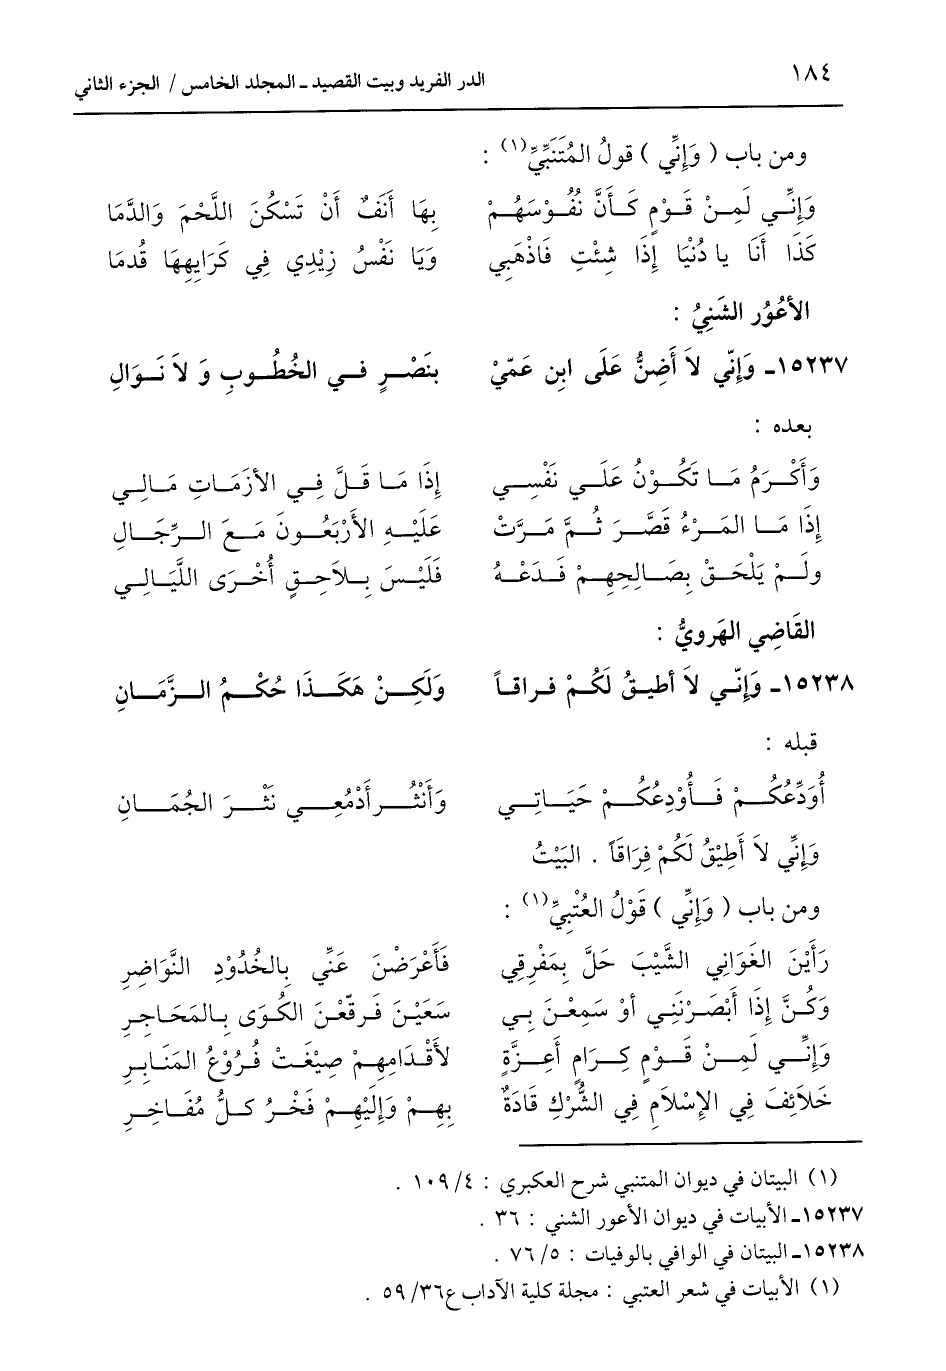 ١٨٤ الدر الفريد وبيت القصيد ـ المجلد الخامس / الجزء الثاني
ومن باب ( وَإِنِّي ) قولُ المُتَنَبِّيِّ(١) :
وَإِنِّـي لَمِـنْ قَـوْمٍ كَـأَنَّ نُفُـوْسَهُـمْ بِهَا أَنَفٌ أَنْ تَسْكُنَ اللَّحْمَ وَالدَّمَا
كَذَا أَنَا يا دُنْيَا إِذَا شِئْتِ فَاذْهَبِي وَيَا نَفْسُ زِيْدِي فِي كَرَايِهِهَا قُدمَا
الأعْوَر الشَنِيُّ :
١٥٢٣٧ـ وَإِنّي لاَ أَضِنُّ عَلَى ابن عَمّيْ بنَصْـرٍ فـي الخُطُـوبِ وَ لاَ نَـوَالِ
بعده :
وَأَكْـرَمُ مَـا تَكُـوْنُ عَلَـي نَفْسِـي إِذَا مَـا قَـلَّ فِـي الأزَمَـاتِ مَـالِـي
إِذَا مَـا المَـرْءُ قَصَّـرَ ثُـمَّ مَـرَّتْ عَلَيْـهِ الأَرْبَعُـونَ مَـعَ الـرِّجَـالِ
ولَـمْ يَلْحَـقْ بِصَـالِحِهِـمْ فَـدَعْـهُ فَلَيْسَ بِـلاَحِـقٍ أُخْـرَى اللَّيَـالِـي
القَاضِي الهَرويُّ :
١٥٢٣٨ـ وَإِنّـي لاَ أطيـقُ لَكُـمْ فـراقـاً وَلَكِـنْ هَكَـذَا حُكْـمُ الـزَّمَـانِ
قبله :
أُوَدِّعُكُـمْ فَـأُوْدِعُكُـمْ حَيَـاتِـي وَأَنْثُـر أَدْمُعِـي نَثْـرَ الجُمَـانِ
وَإِنِّي لاَ أَطِيْقُ لَكُمْ فِرَاقَاً . البَيْتُ
ومن باب ( وَإِنِّي ) قَوْلُ العُتْبِيِّ(١) :
رَأَيْنَ الغَوَانِي الشَّيْبَ حَلَّ بِمَفْرِقِي فَأَعْرَضْنَ عَنِّي بِالخُدُوْدِ النَّوَاضِرِ
وَكُنَّ إِذَا أَبْصَـرْنَنِـي أوْ سَمِعْـنَ بِـي سَعَيْـنَ فَـرقّعْـنَ الكُـوَى بِـالمَحَـاجِـرِ
وَإِنِّـي لَمِـنْ قَـوْمٍ كِـرَامٍ أَعِـزَّةٍ لأَقْـدَامِهِـمْ صِيْغَـتْ فُـرُوْعُ المَنَـابِـرِ
خَلاَئِفَ فِي الإسْلاَمِ فِي الشِّرْكِ قَادَةٌ بِهِـمْ وَإِلَيْهِـمْ فَخْـرُ كـلُّ مُفَـاخِـرِ
(١) البيتان في ديوان المتنبي شرح العكبري : ٤/ ١٠٩ .
١٥٢٣٧ـ الأبيات في ديوان الأعور الشني : ٣٦ .
١٥٢٣٨ـ البيتان في الوافي بالوفيات : ٥/ ٧٦ .
(١) الأبيات في شعر العتبي : مجلة كلية الآداب ع٣٦/ ٥٩ .